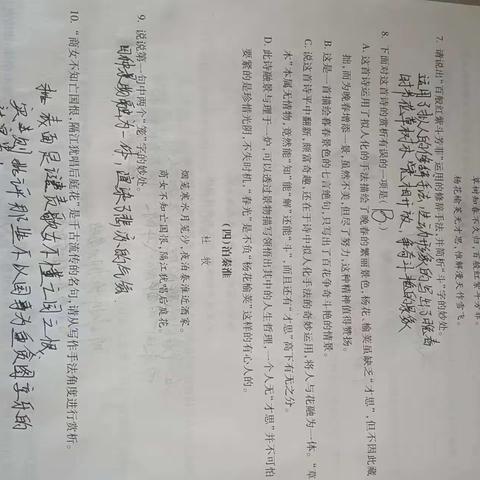 草树知春不久归,百般红紫斗芳菲。
杨花榆荚无才思,惟解漫天作雪飞。
7. 请说出“百般红紫斗芳菲”采用的修辞手法,并简析“斗”字的妙处。
运用了拟人的修辞手法,生动形象的写出了晚春
时花草树木 竞相开放,争奇斗艳的景象
8. 下面对这首诗的赏析有误的一项是( B )
A. 这首诗运用了拟人化的手法描绘了晚春的繁丽景色,杨花、榆荚虽缺乏“才思”,但不因此藏
拙,而为晚春增添一景,虽然不美,但尽了努力,这种精神值得赞扬。
B. 这是一首描绘暮春景色的七言绝句,只写出了百花争奇斗艳的情景。
C. 说这首诗平中翻新,颇富奇趣,还在于诗中拟人化手法的奇妙运用,将人与花融为一体。“草
木”本属无情物,竟然能“知”能“解”还能“斗”,而且还有“才思”高下有无之分。
D. 此诗融景与理于一炉,可以透过景物描写领悟出其中的人生哲理:一个人无“才思”并不可怕,
要紧的是珍惜光阴,不失时机,“春光”是不负“杨花榆荚”这样的有心人的。
(四)泊秦淮
杜 牧
烟笼寒水月笼沙,夜泊秦淮近酒家。
商女不知亡国恨,隔江犹唱后庭花。
9. 说说第一句中两个“笼”字的妙处。
融为一体,
10. “商女不知亡国恨,隔江犹唱后庭花”是千古流传的名句,请从写作手法角度进行赏析。
表面是谴责歌女不懂亡国之恨
实, 则批评那些不以国事为重贪图享乐的